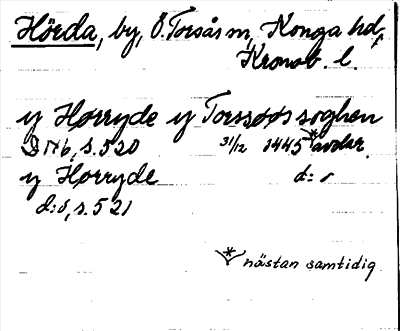 Hörda, by, Ö. Torsås sn, Konga hd,
Kronob. l.
y Hørryde y Torssøøs soghen
S Nb, s. 520 31/12 1445 * avskr.
y Hørryde d:o
d:o, s. 521
* nästan samtidig